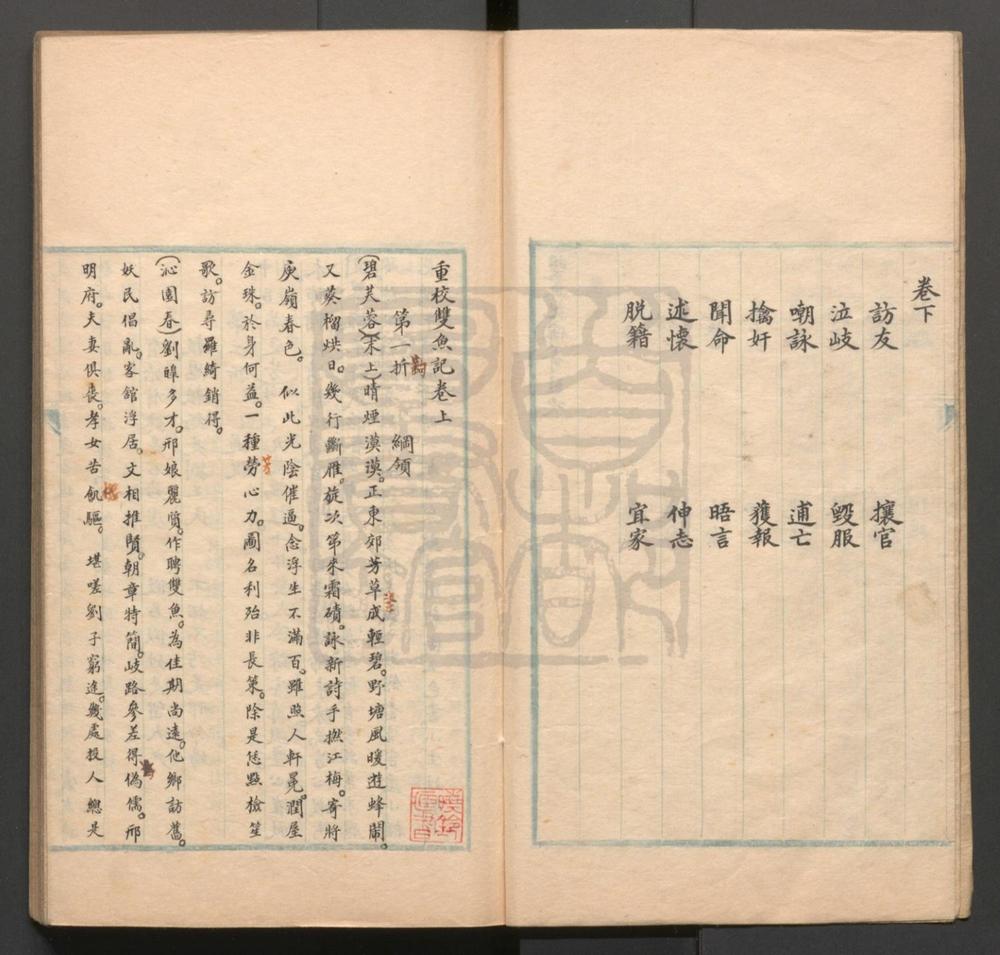 卷下
訪友 攘官
泣岐 毀服
嘲詠 逋亡
擒奸 獲報
聞命 晤言
述懷 伸志
脫籍 宜家
重校雙魚記卷上
第一折 綱領
(碧芙蓉)(末上)晴煙漠漠。正東郊芳草成輕碧。野塘風暖遊蜂鬧。
又葵榴烘日。幾行斷雁。旋次第來霜磧。詠新詩手撚江梅。寄將
庾嶺春色。 似此光陰催逼。念浮生不滿百。雖照人軒冕。潤屋
金珠。於身何益。一種勞心力。圖名利殆非長策。除是恁點檢笙
歌。訪尋羅綺銷得。
(沁園春)劉皞多才。邢娘麗質。作聘雙魚。為佳期尚遠。他鄉訪舊。
妖民倡亂。客館浮居。文相推賢。朝章特簡。岐路參差得偽儒。邢
明府。夫妻俱喪。孝女苦飢驅。 堪嗟劉子窮途。幾處投人總是